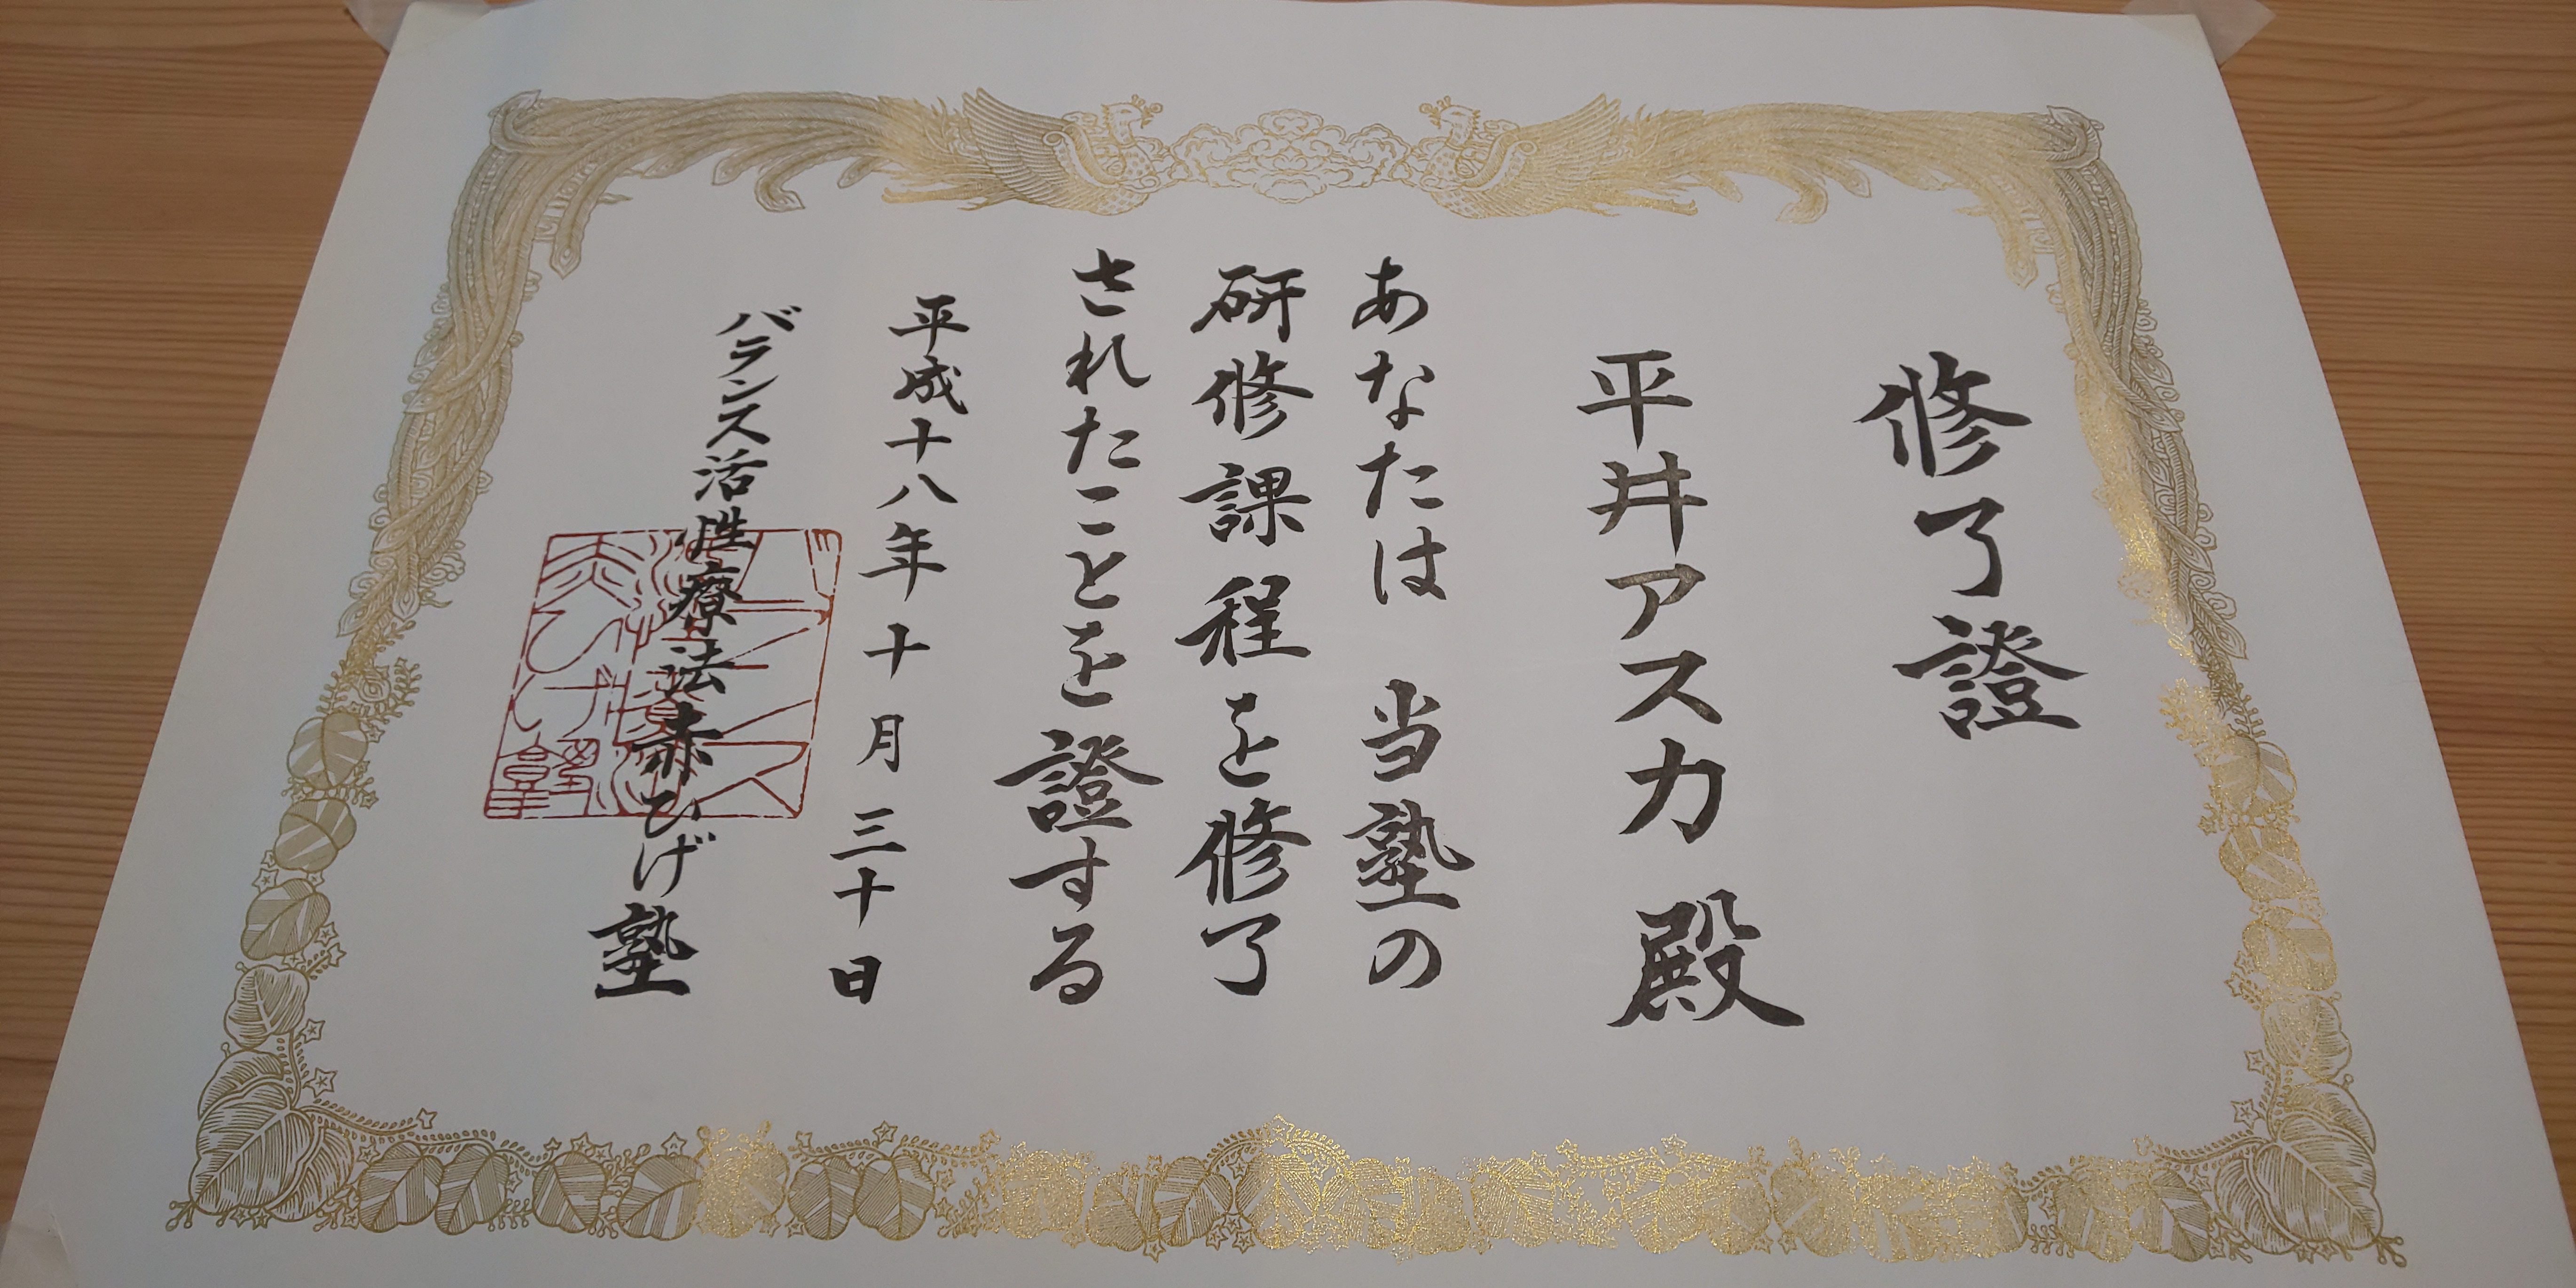 修了證
平井アスカ 殿
あなたは 当塾の
研修課程を修了
されたことを證する
平成十八年十月三十日
バランス活性療法赤ひげ塾